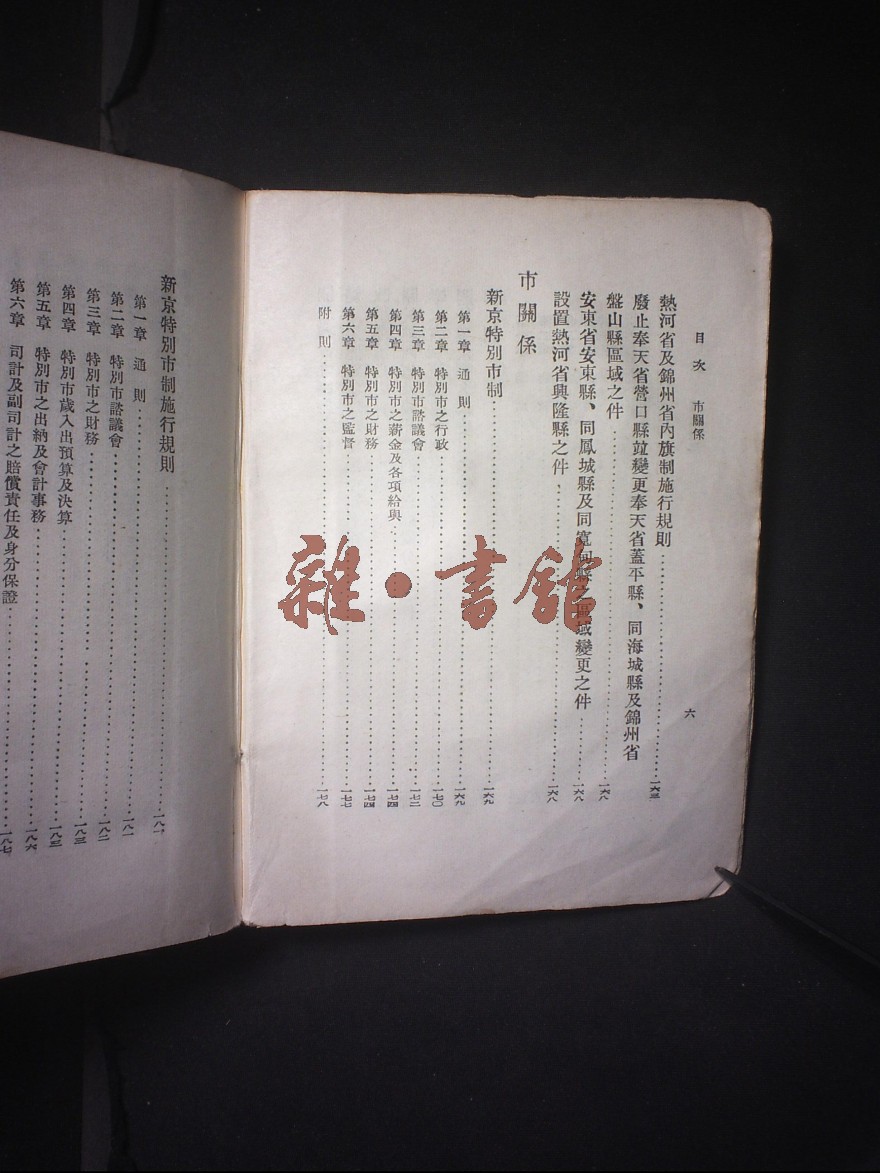 目次 市關係 六
熱河省及錦州省內旗制施行規則……一六三
廢止奉天省營口縣竝變更奉天省蓋平縣、同海城縣及錦州省
盤山縣區域之件……一六八
安東省安東縣、同鳳城縣及同寬甸縣之區域變更之件……一六八
設置熱河省興隆縣之件……一六八
市關係
新京特別市制……一六九
第一章 通則……一六九
第二章 特別市之行政……一七〇
第三章 特別市諮議會……一七二
第四章 特別市之薪金及各項給與……一七四
第五章 特別市之財務……一七四
第六章 特別市之監督……一七七
附則……一七八
新京特別市制施行規則……一八一
第一章 通則……一八一
第二章 特別市諮議會……一八二
第三章 特別市之財務……一八三
第四章 特別市歲入出預算及決算……一八三
第五章 特別市之出納及會計事務……一八六
第六章 司計及副司計之賠償責任及身分保證……一八七
雜·書館